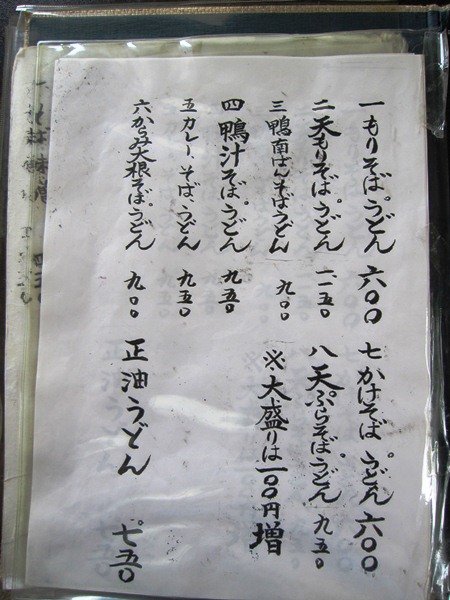 一 もりそば。うどん 六〇〇
二 天もりそば。うどん 一一五〇
三 鴨南ばんそばうどん 九〇〇
四 鴨汁そば。うどん 九五〇
五 カレー、そば、うどん 九五〇
六 からみ大根そば。うどん 九〇〇
七 かけそば。うどん 六〇〇
八 天ぷらそば。うどん 九五〇
※大盛りは一〇〇円増
正油うどん 七五〇